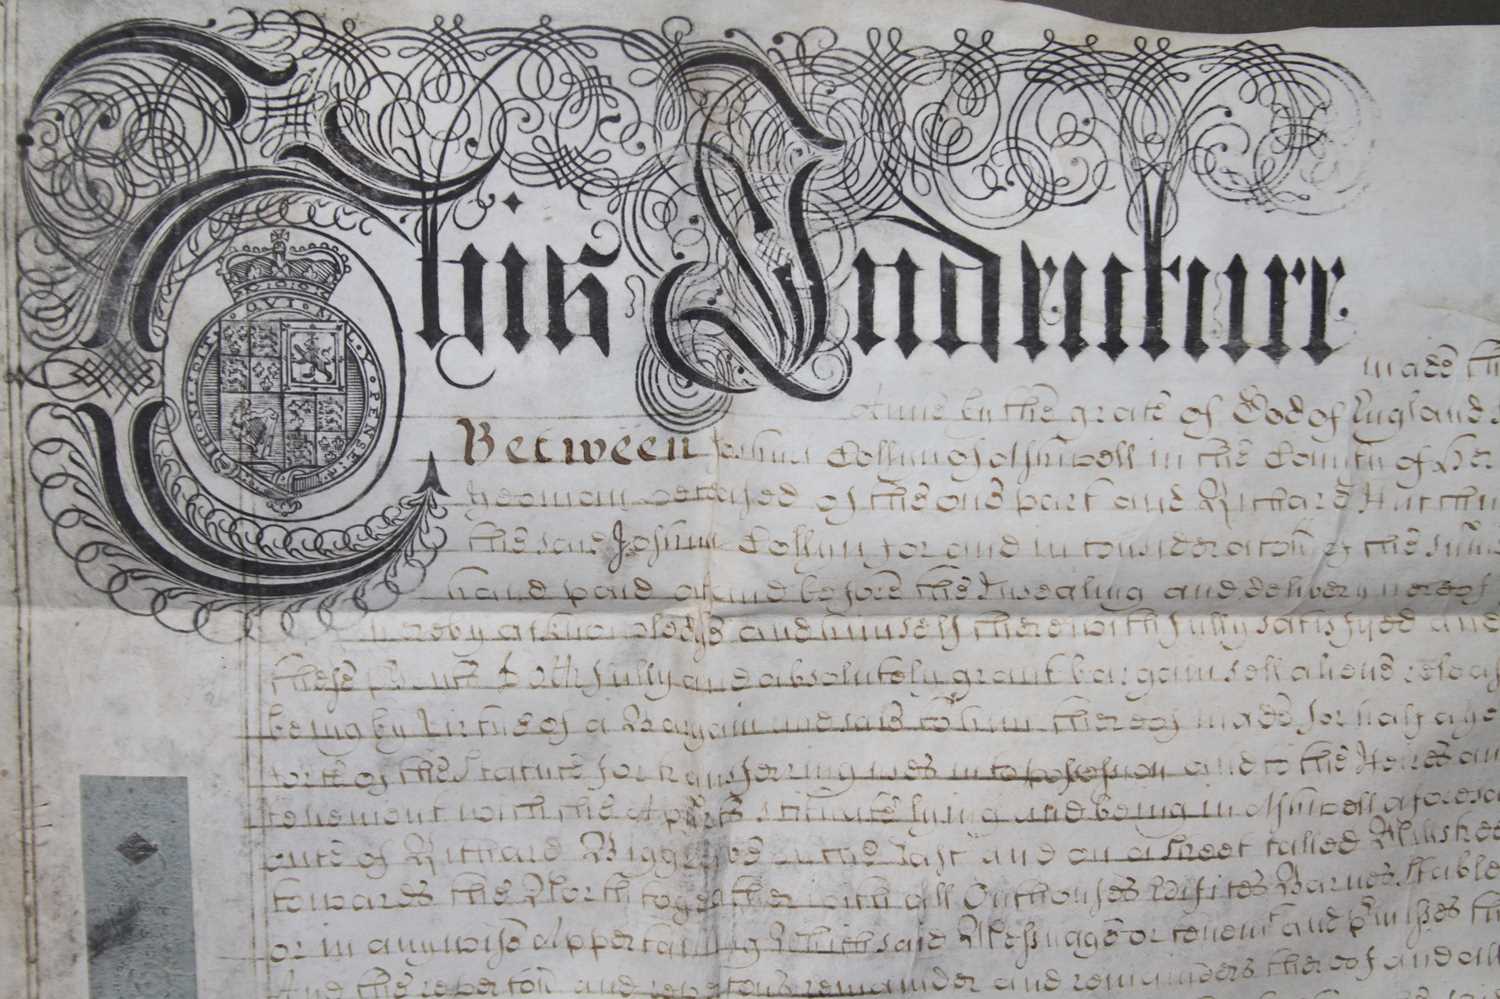 This Indenture
made th
Anne by the grace of God of England
Between Joshua Collyn of Ashwell in the County of Her
yeoman of the one part and Richard Hutchin
the said Joshua Collyn for and in consideracon of the summe
hand paid att and before the Ensealing and delivery hereof
hereby acknowledge and himself therewith fully satisfyed and
these doth fully and absolutely grant bargain sell aliene releas
being by Virtue of a Bargain and sale to him thereof made for half a ye
force of the Statute for transferring uses into possession and to the Heires an
tenement with the situate lying and being in Ashwell aforesa
of Richard on the East and on a street called
towards the North together with all Outhouses Edifices Barnes Stable
or in anywise Appertaining Which said Messuage or tenemt and Premisses
And the reverton and remainder and remainders thereof and all
HONI SOIT QVI MAL Y PENSE